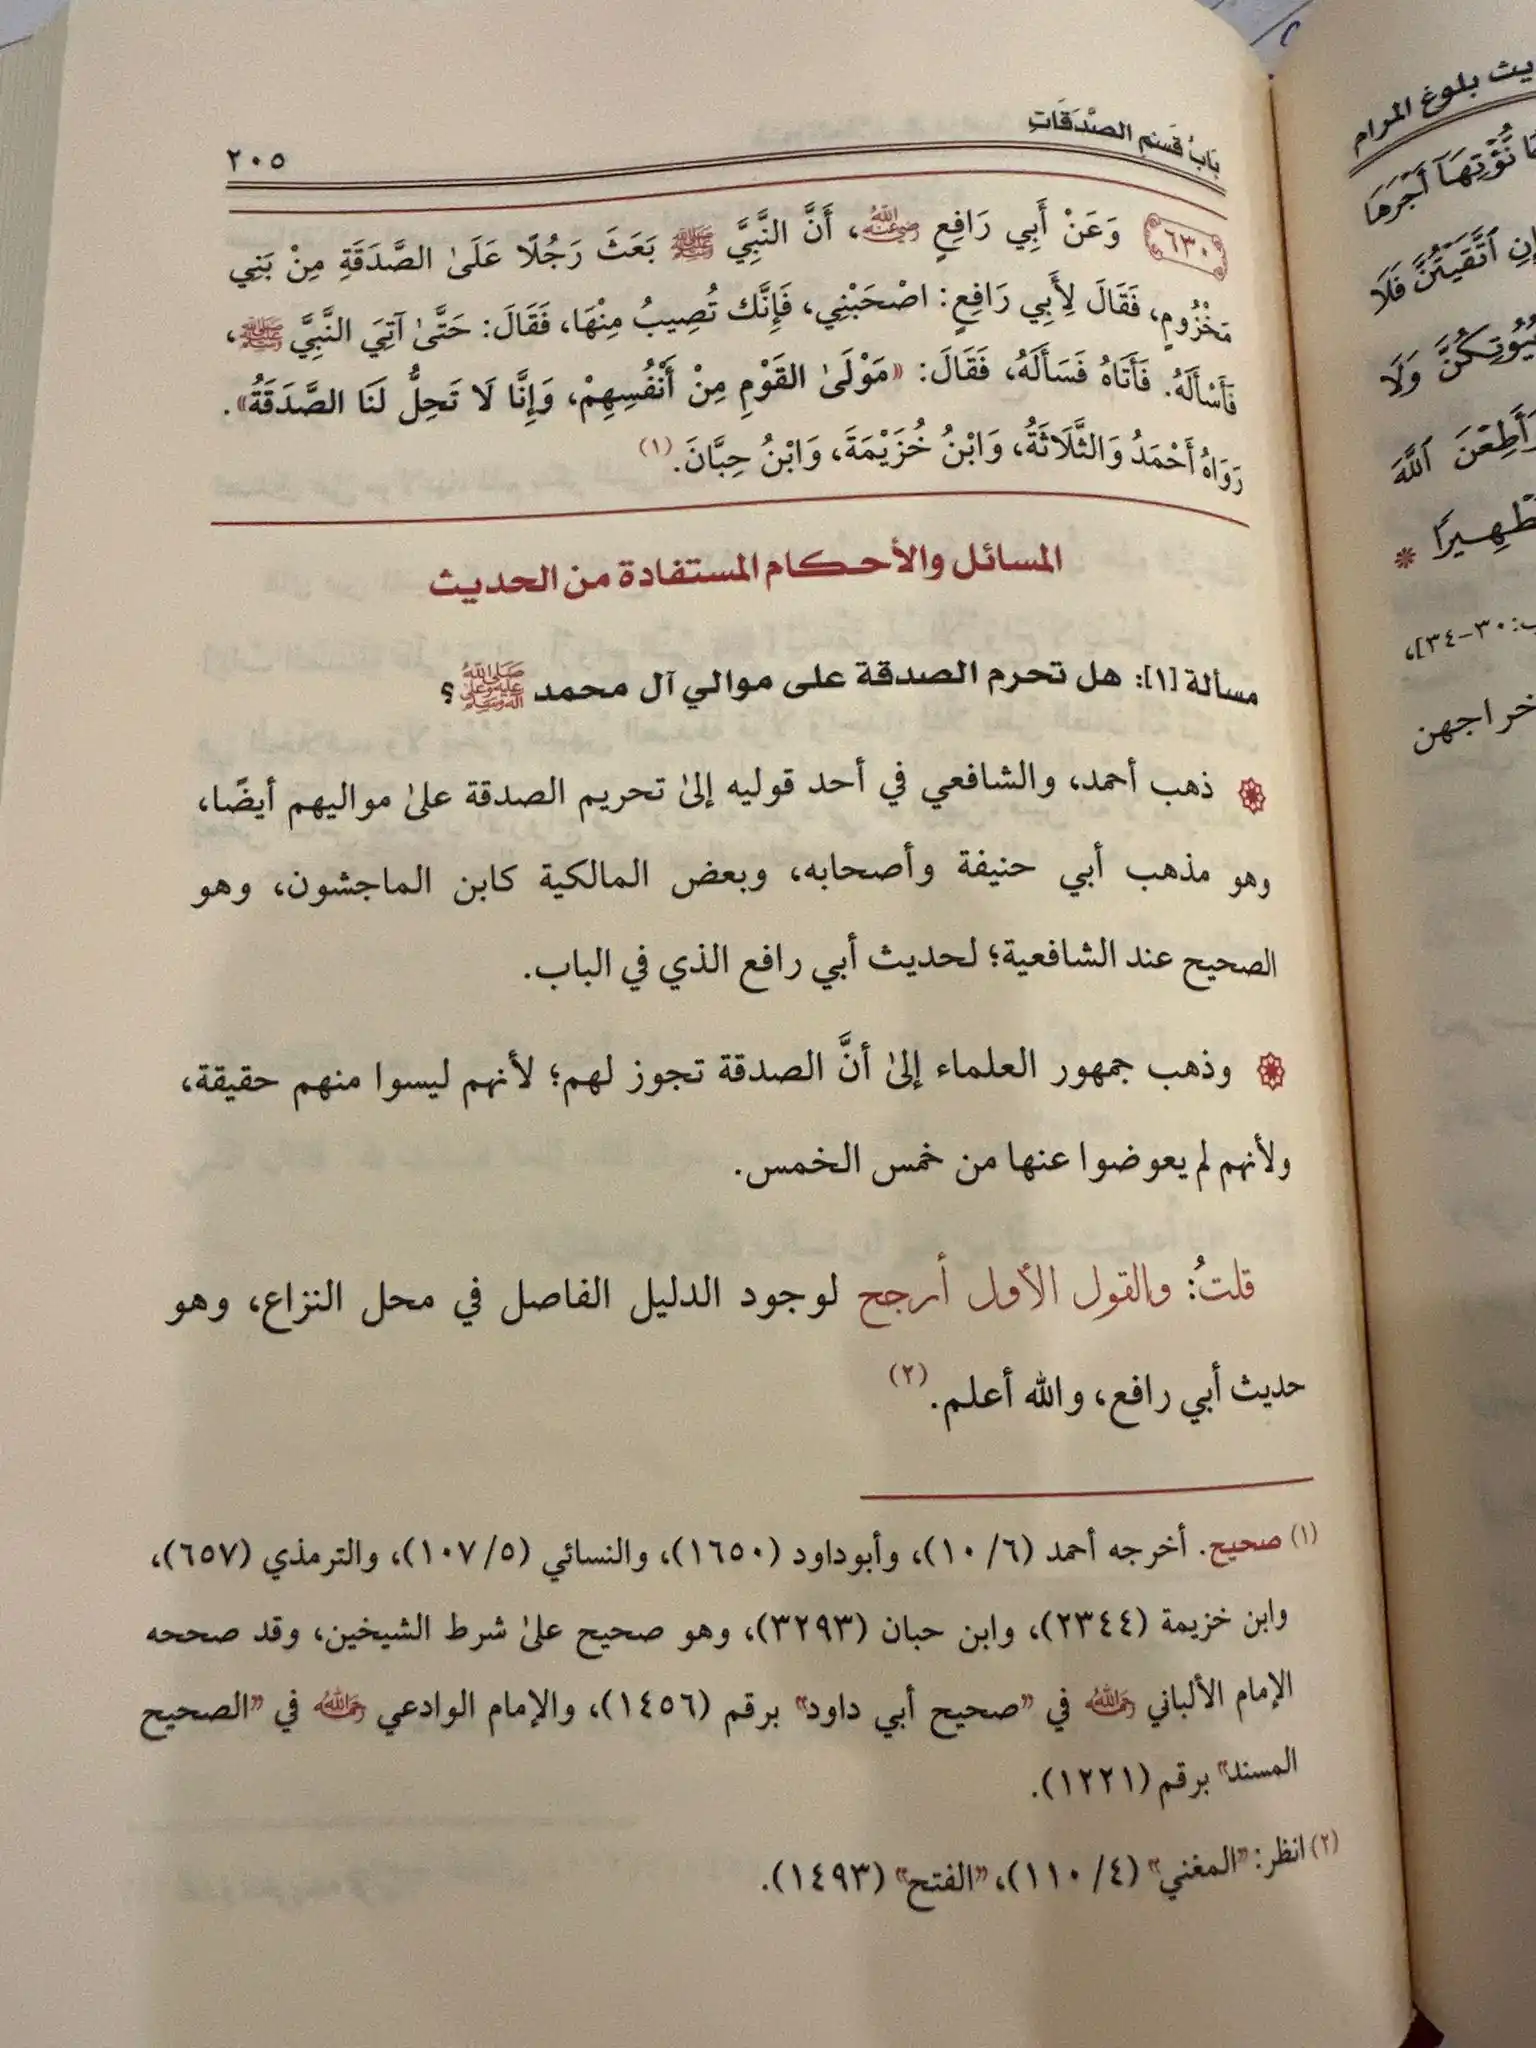 بَابُ قَسْمِ الصَّدَقَاتِ ٢٠٥
٦٣٠ وَعَنْ أَبِي رَافِعٍ رضي الله عنه، أَنَّ النَّبِيَّ ﷺ بَعَثَ رَجُلًا عَلَىٰ الصَّدَقَةِ مِنْ بَنِي
مَخْزُومٍ، فَقَالَ لِأَبِي رَافِعٍ: اصْحَبْنِي، فَإِنَّك تُصِيبُ مِنْهَا، فَقَالَ: حَتَّىٰ آتِيَ النَّبِيَّ ﷺ،
فَأَسْأَلَهُ. فَأَتَاهُ فَسَأَلَهُ، فَقَالَ: «مَوْلَىٰ القَوْمِ مِنْ أَنْفُسِهِمْ، وَإِنَّا لَا تَحِلُّ لَنَا الصَّدَقَةُ».
رَوَاهُ أَحْمَدُ وَالثَّلَاثَةُ، وَابْنُ خُزَيْمَةَ، وَابْنُ حِبَّانَ. (١)
المسائل والأحكام المستفادة من الحديث
مسألة [١]: هل تحرم الصدقة على موالي آل محمد صلى الله عليه وعلى آله وسلم؟
ذهب أحمد، والشافعي في أحد قوليه إلىٰ تحريم الصدقة علىٰ مواليهم أيضًا،
وهو مذهب أبي حنيفة وأصحابه، وبعض المالكية كابن الماجشون، وهو
الصحيح عند الشافعية؛ لحديث أبي رافع الذي في الباب.
وذهب جمهور العلماء إلىٰ أنَّ الصدقة تجوز لهم؛ لأنهم ليسوا منهم حقيقة،
ولأنهم لم يعوضوا عنها من خمس الخمس.
قلتُ: والقول الأول أرجح لوجود الدليل الفاصل في محل النزاع، وهو
حديث أبي رافع، والله أعلم. (٢)
(١) صحيح. أخرجه أحمد (٦/ ١٠)، وأبوداود (١٦٥٠)، والنسائي (٥/ ١٠٧)، والترمذي (٦٥٧)،
وابن خزيمة (٢٣٤٤)، وابن حبان (٣٢٩٣)، وهو صحيح علىٰ شرط الشيخين، وقد صححه
الإمام الألباني رحمه الله في «صحيح أبي داود» برقم (١٤٥٦)، والإمام الوادعي رحمه الله في «الصحيح
المسند» برقم (١٢٢١).
(٢) انظر: «المغني» (٤/ ١١٠)، «الفتح» (١٤٩٣).
بلوغ المرام
نُّؤْتِهَآ أَجْرَهَا
إِنِ ٱتَّقَيْتُنَّ فَلَا
بُيُوتِكُنَّ وَلَا
وَأَطِعْنَ ٱللَّهَ
٣٠-٣٤]،